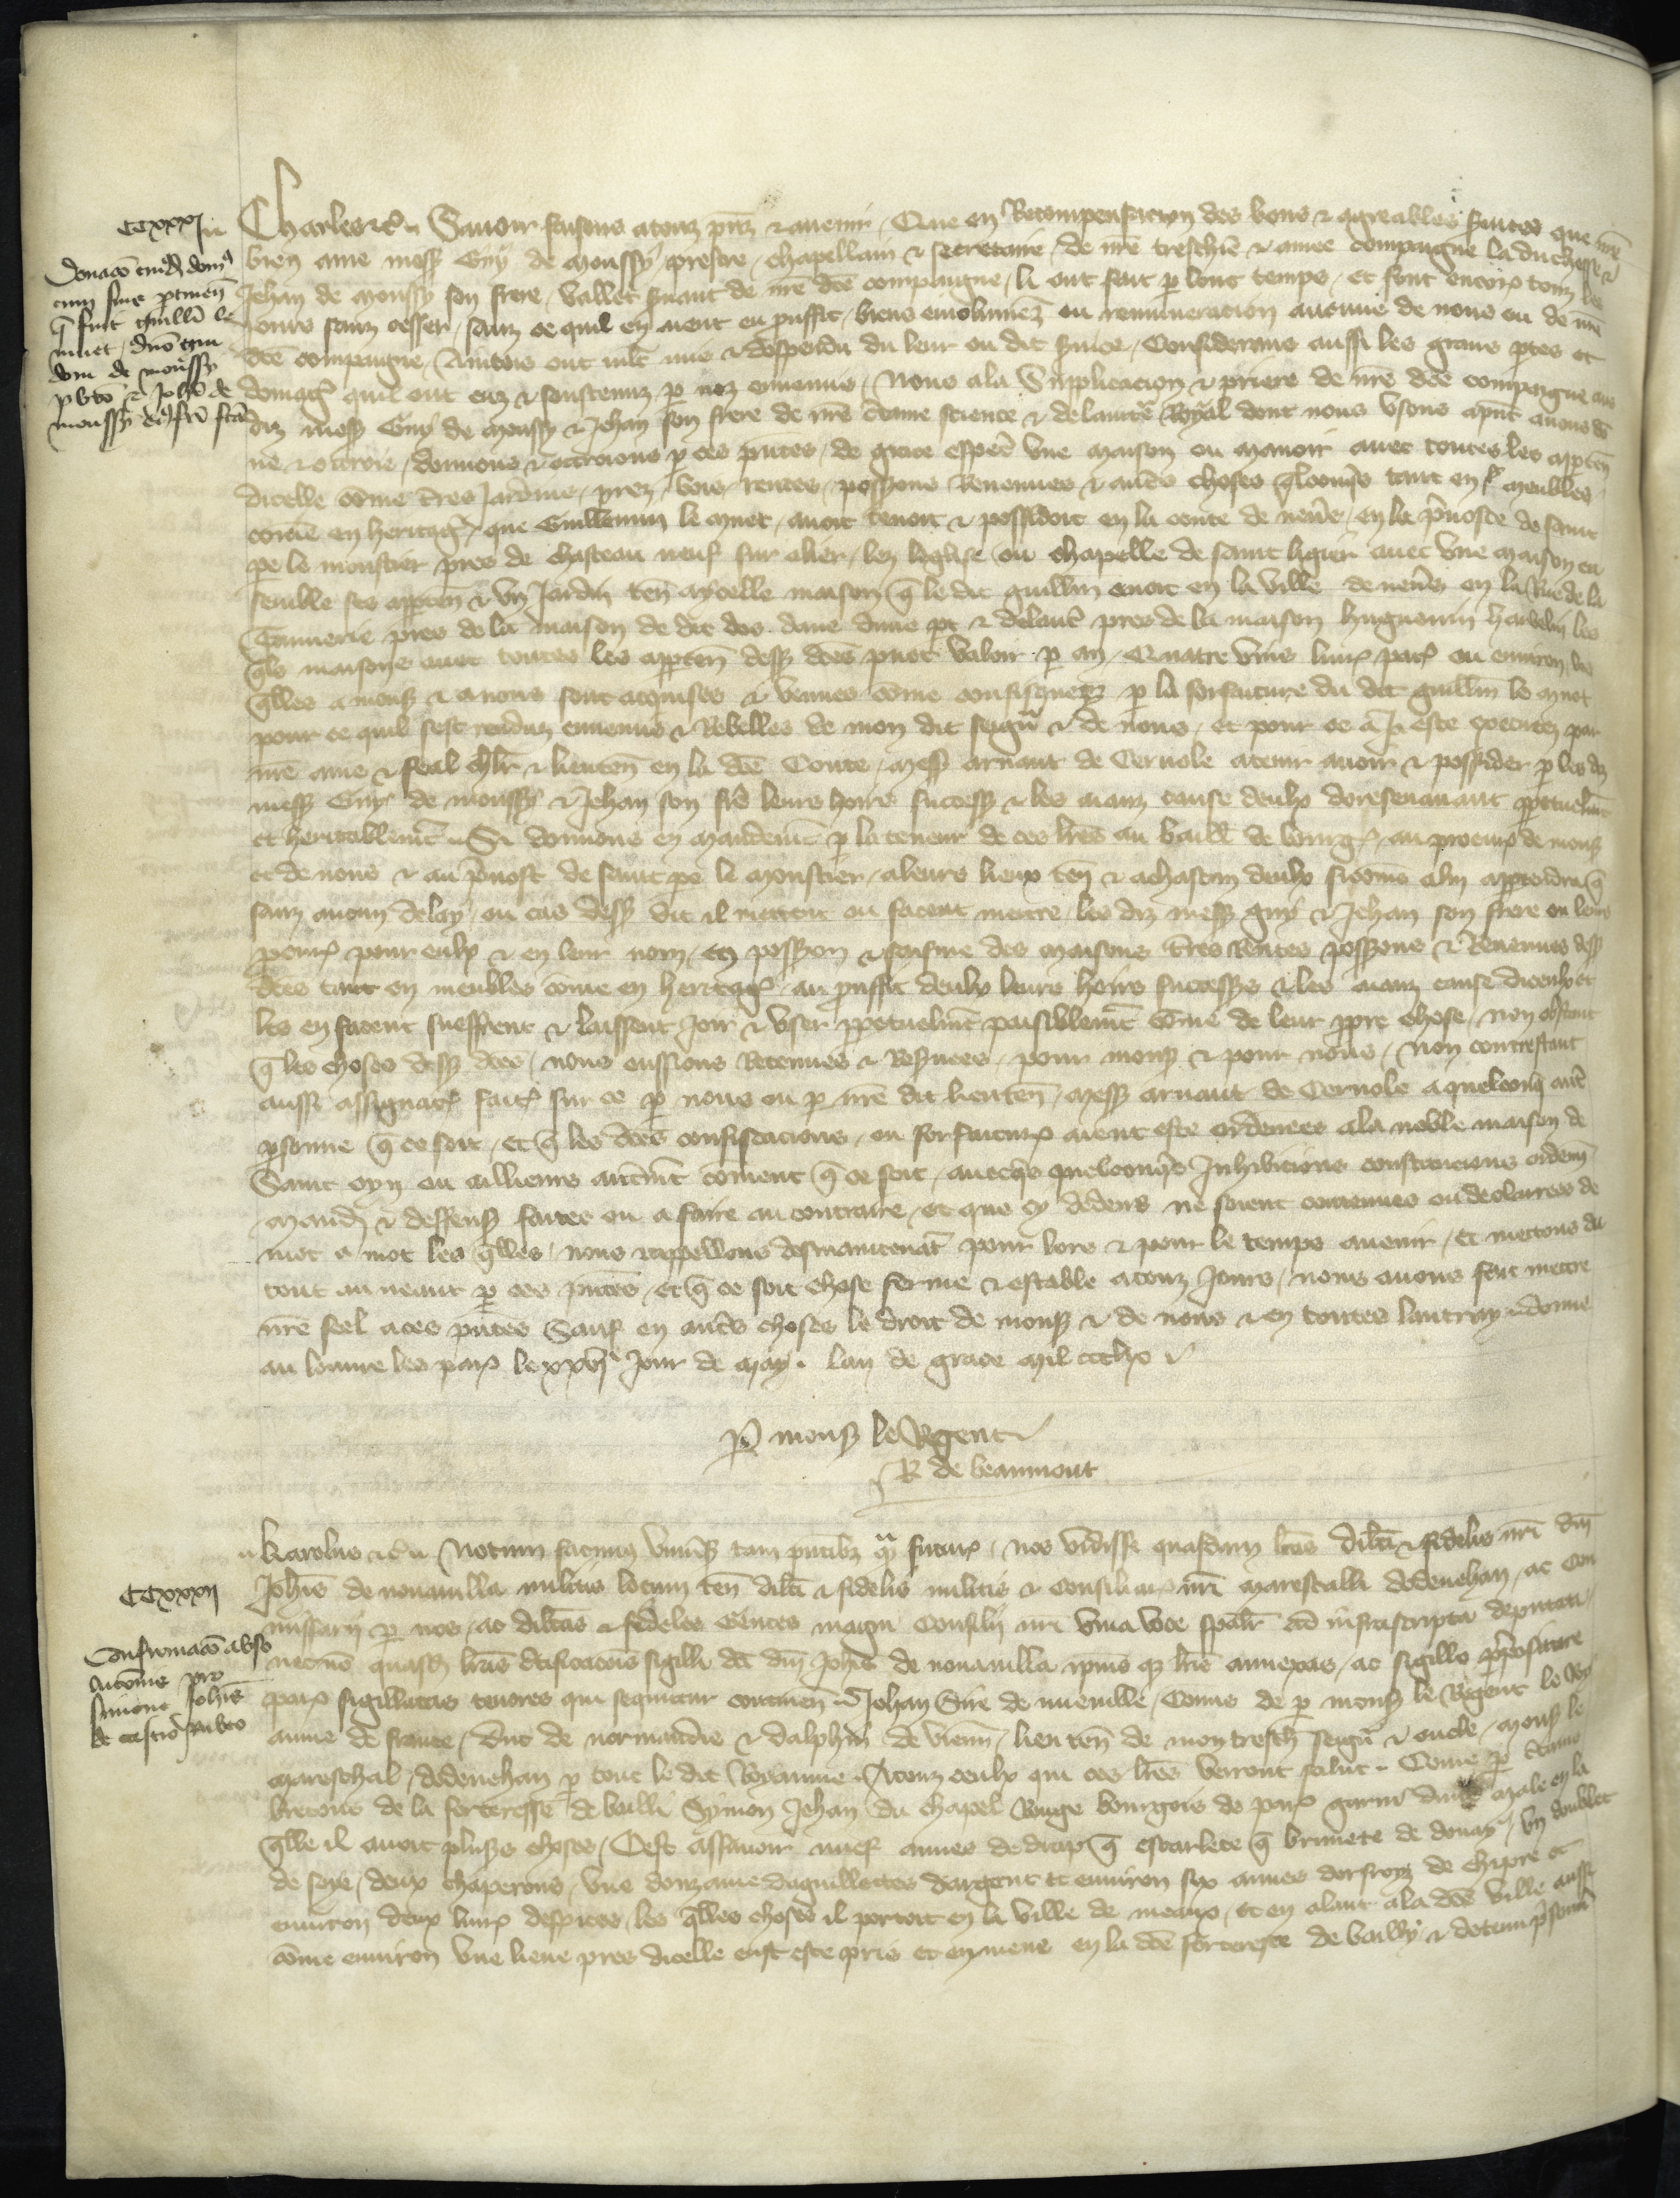 CCXXXI
Donacio cuiusdam dom9
cum suis ptinen
q fuit Guillmi le
muet, dno Gui
doni de moussy
pbro & Johi de
moussy ei9 fri fca
Charles &c. Savoir faisons a touz pns & avenir, Que en Recompensacion des bons & agreables services que nre
bien ame mess Guy de moussy prestre, chapellain & secretaire de nre treschiere & amee compaigne la duchesse &
Jehan de moussy son frere, vallet servant de nre dce compaigne, li ont fait p lonc temps, et font encores touz les
jours sanz cesser, sanz ce quil en aient eu prouffit, biens emolumez ou remuneracion aucune de nous ou de nre
dce compaigne, Aincois ont mlt mis & despendu du leur ou dit servise, Considerans aussi les grans ptes et
domages quil ont euz & soustenuz p noz ennemis, Nous a la Supplicacion & priere de nre dce compaigne aus
diz mess Guy de moussy & Jehan son frere de nre certaine science & de lauctorite Royal dont nous usons apnt avons do
ne & ottroie, donnons & ottroions p ces pntes, de grace esperial une maison ou manoir avec toutes les apten
dicelle come terres Jardins, prez, bois, rentes, possessions Revenues & autres choses qlconqs tant en meubles
come en heritages, que Guillemin le muet, avoit tenoit & possidoit en la conte de nevers, en la prevoste de saint
pe le moustier pres de chasteau neuf sur alier, lez leglise ou chapelle de saint ligier avec une maison en
semble ses appten & un Jardin ten a ycelle maison q le dit guillmin avoit en la ville de nevers en la Rue de la
Tannerie pres de la maison de dit dos dane dune pt & dautre pres de la maison huguenin havelin les
qles maisons avec toutes les apptens dess dces puet valoir p an, Quatre vins livres par ou environ, les
qlles a mons & a nous sont acquises & venues come confisquees p la forfaiture du dit guillmin le muet
pour ce quil sest renduz ennemis & Rebelles de mon dit seigneur & de nous, et pour ce a este executez par
nre ame & feal chlr & lieuten en la dce Conte, mess arnaut de Cervole a tenir avoir & possider p les diz
mess Guy de moussy & Jehan son frere leurs hoirs success & les aianz cause deulx doresenavant ppetuelmt
et heritablemt. Si donnons en mandemt p la teneur de ces lres au baillif de bourges, au procureur de mons
et de nous & au prevost de saint pe le moustier, a leurs lieux ten & a chascun deulx si come a lui appartendra q
sanz aucun delay, ou cas dess dit il mettent ou facent mettre, les diz mess guy & Jehan son frere ou leurs
procureurs pour eulx & en leur nom, en possession & saisine des maisons terres Rentes possessions & Revenues dess
dces tant en meubles come en heritages au prouffit deulx leurs hoirs successeurs & les aianz cause diceulx et
les en facent sueffrent & laissent joir & user ppetuelmt paisiblemt come de leur propre chose, non obstant
q les choses dess dces, nous eussions Retenues & Reservees, pour mons & pour nous, Non contrestant
aussi assignacions faites sur ce p nous ou p nre dit lieuten, mess arnaut de Cervole a quelconq autre
psonne q ce soit, et q les dces confiscacions, ou forfaitures aient este ordenees a la noble maison de
Saint oyn ou ailleurs autremt coment q ce soit, avecques quelconqs Inhibicions constitucions ordenan
mandemens & deffenses faites ou a faire au contraire, et que cy dedens ne soient contenues ou declairees de
mot a mot les qlles, nous rappellons desmaintenat pour lors & pour le temps avenir, et mettons du
tout au neant p ces pntes, et q ce soit chose ferme & estable a touz Jours, nous avons fait mettre
nre seel a ces pntes Sauf en autres choses le droit de mons & de nous & en toutes lautruy. donne
au louvre lez paris le xxvije jour de may. lan de grace mil ccclx
P mons le Regent
R de beaumont
CCXXXII
Confirmaco abso
lucionis pro
simone Johis
de capello rubeo
Karolus &c. Notum facimus universis tam pntibz q futuris, nos vidisse quasdam lras dilci & fidelis nri dni
Johis de novavilla militis locum ten dilci & fidelis militis & Consiliarii nri marescalli dodenehan, ac Con
missarii p nos, ac dilectos & fideles Gentes magni Consilii nri viva voce spalr ad infrascripta deputati,
necnon quasd lras certificacois sigilli dci dni Johis de novavilla ipius qz lris annexas, ac sigillo ppositure
paris sigillatas tenores qui sequitur continen. Jehan Sire de nueville, Comis de p mons le Regent le roy
aume de france, duc de normandie & dalphin de vienn, lieu ten de mon tresch seigneur & oncle, mons le
mareschal, dodenehan p tout le dit Royaume. A touz ceulx qui ces lres verront salut. Come p certains
bretons de la forteresse de bailli Symon Jehan du chapel Rouge bourgois de paris garni dune male en la
qlle il avoit pluss choses, Cest assavoir nuef aunes de drap q escarlete q brunete de douay, un doublet
de soye, deux chaperons, une douzaine daguillettes dargent et environ six aunes dorfroyz de chipre et
environ deux livres despices, les qlles choses il portoit en la ville de meaux, et en alant a la dce ville aussi
come environ une lieue pres dicelle eust este pris et en mene en la dce forteresse de bailly & detenu prisonnier